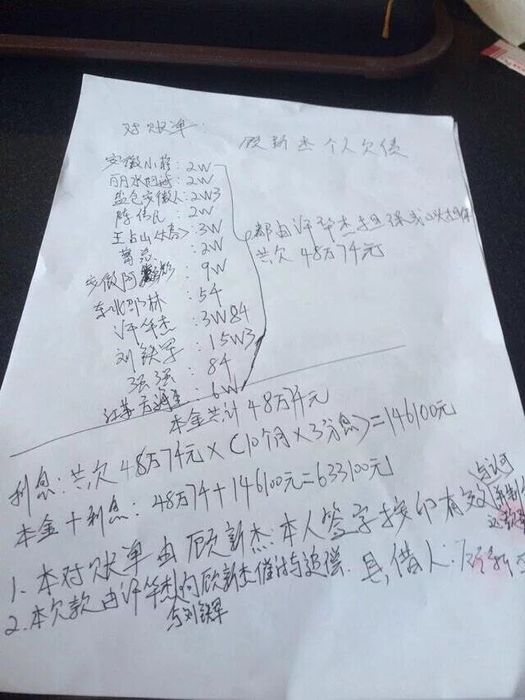 对账单:
顾新杰个人欠债
安徽小程:2W
丽水阿诚:2W
盐仓安徽人:2W3
陈伟民:2W
王占山:3W
2W
安徽阿:9W
东北邵林:54
许华杰:3W84
刘铁军:15W3
强强:84
江苏:6W
都由许华杰担保或口头担保
共欠48万74元
本金共计48万74元
利息:共欠48万74元×(10个月×3分息)=146100元
本金+利息:48万74+146100元=633100元
1.本对账单由顾新杰本人签字按印有效
2.本欠款由许华杰与刘铁军向顾新杰催讨与追偿.
具借人:顾新杰